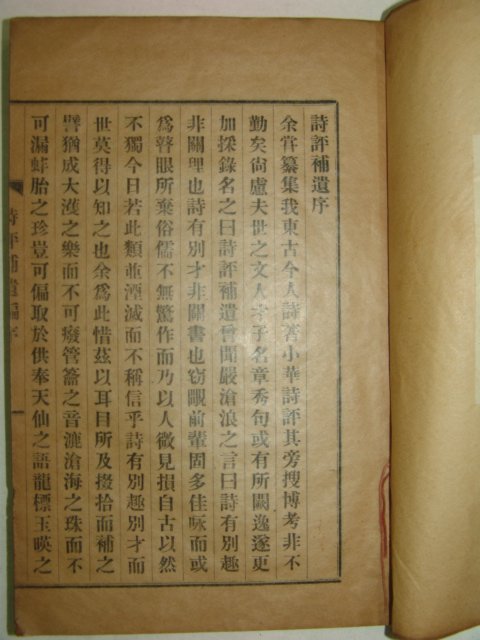 詩評補遺序
余甞纂集我東古今人詩著小華詩評其旁搜博考非不
勤矣尙慮夫世之文人才子名章秀句或有所闕逸遂更
加採錄名之曰詩評補遺曾聞嚴滄浪之言曰詩有別趣
非關理也詩有別才非關書也窃覵前輩固多佳咏而或
爲瞽眼所棄俗儒不無驚作而乃以人微見損自古以然
不獨今日若此類並湮滅而不稱信乎詩有別趣別才而
世莫得以知之也余爲此惜玆以耳目所及掇拾而補之
譬猶成大濩之樂而不可癈管籥之音漉滄海之珠而不
可漏蚌胎之珍豈可偏取於供奉天仙之語龍標玉暎之
詩評補遺